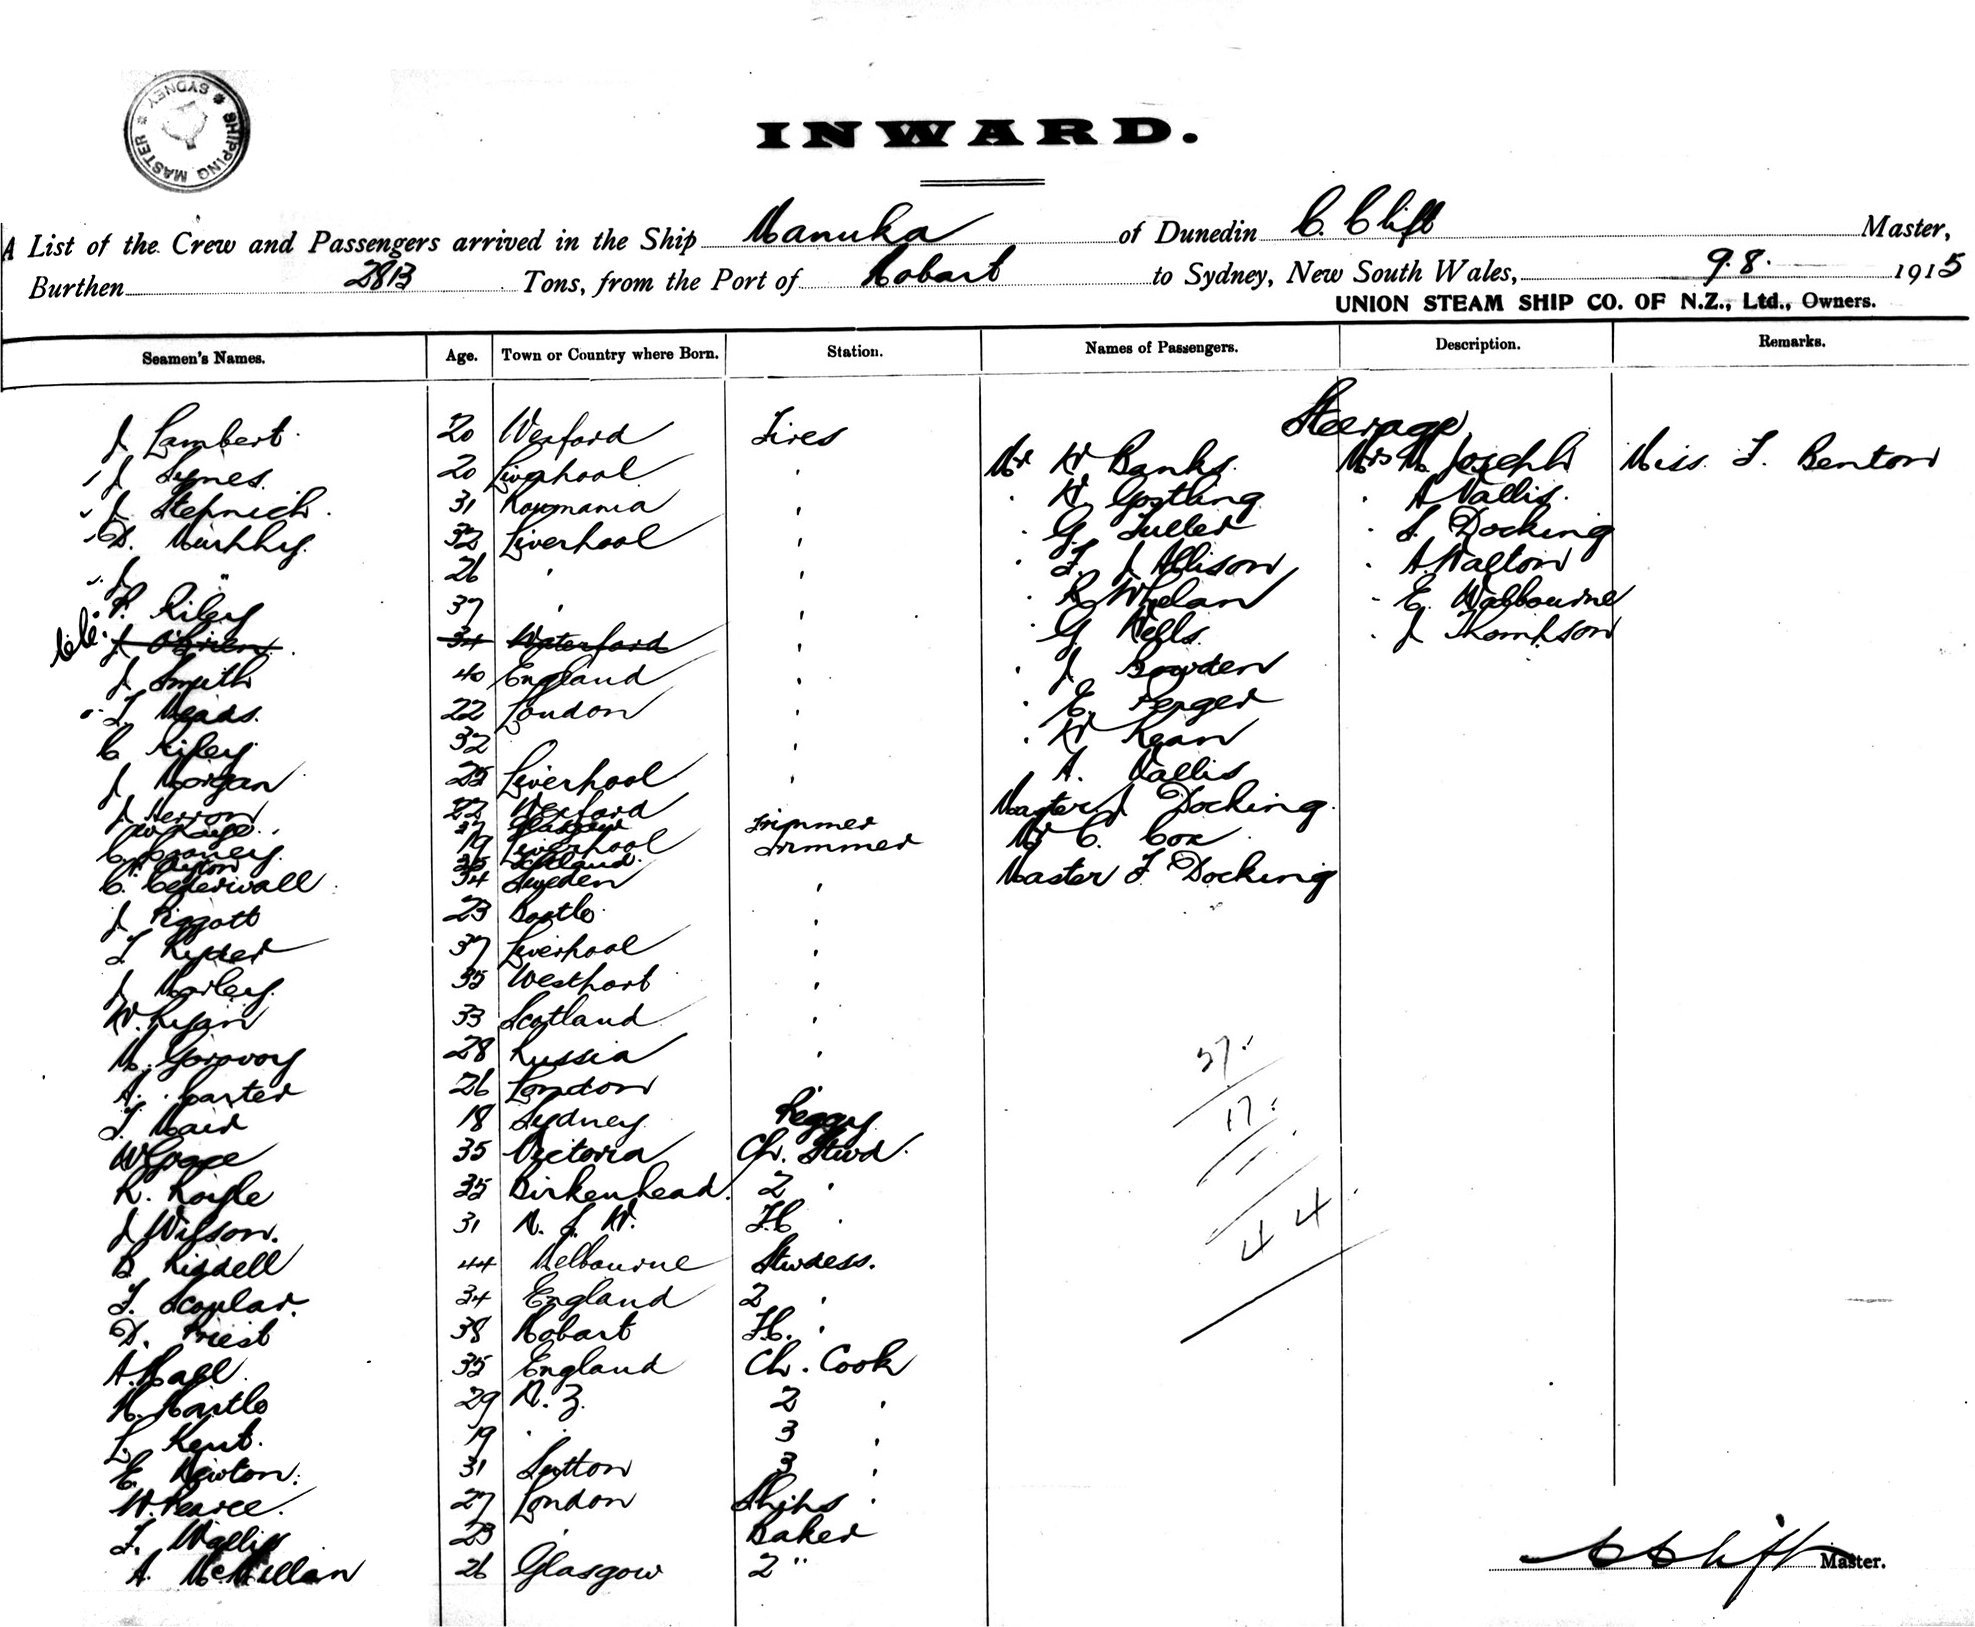 SHIPPING MASTER * SYDNEY *
INWARD.
A List of the Crew and Passengers arrived in the Ship Manuka of Dunedin C. Clift Master,
Burthen 2813 Tons, from the Port of Hobart to Sydney, New South Wales, 9.8. 1915
UNION STEAM SHIP CO. OF N.Z., Ltd., Owners.
Seamen's Names. Age. Town or Country where Born. Station. Names of Passengers. Description. Remarks.
Steerage
J Lambert 20 Wexford Fires
Mr H Banks Mrs M Joseph Miss F. Benton
J Synes 20 Liverpool '
" H. Gostling " A Vallis.
J Stepnich 31 Roumania '
" G Fuller " S. Docking
D. Murphy 32 Liverpool '
" F. J Allison " A Walton
J " 26 ' '
" R Whelan " E. Walbourne
P. Riley 37 ' '
" G Wells " J Thompson
J O'Brien 34 Waterford '
" J Bowden
J Smith 40 England '
" E.
T. Meads. 22 London '
" H Kean
C Riley 32 '
A. Vallis
J Morgan 25 Liverpool '
Master J Docking
J Herron 22 Wexford
37 Glasgow Trimmer
Mr C. Cox
C 19 Liverpool Trimmer
35 Scotland
Master F Docking
C. Cederwall 34 Sweden '
J Piggott 23 Bootle '
T Ryder 37 Liverpool '
J Morley 35 Westport '
W. Ryan 33 Scotland '
M. 28 Russia '
A. Carter 26 London '
T. Mair 18 Sydney Peggy
W Grace 35 Victoria Ch. Stwd.
R. Royle 35 Birkenhead 2 '
J Wilson. 31 N. S. W. F.C '
B Riddell 44 Melbourne Stwdess.
F. Scoular. 34 England 2 '
D. Priest 38 Hobart F.C. '
A. Hall 35 England Ch. Cook
H. Hartle 29 N. Z. 2 '
L. Kent. 19 " " 3 '
E. Newton. 31 Sutton 3 '
W. Pearce. 27 London Ships '
F. Wallis 23 ' Baker
A. McMillan 26 Glasgow 2 "
37
17
44
C Clift Master.